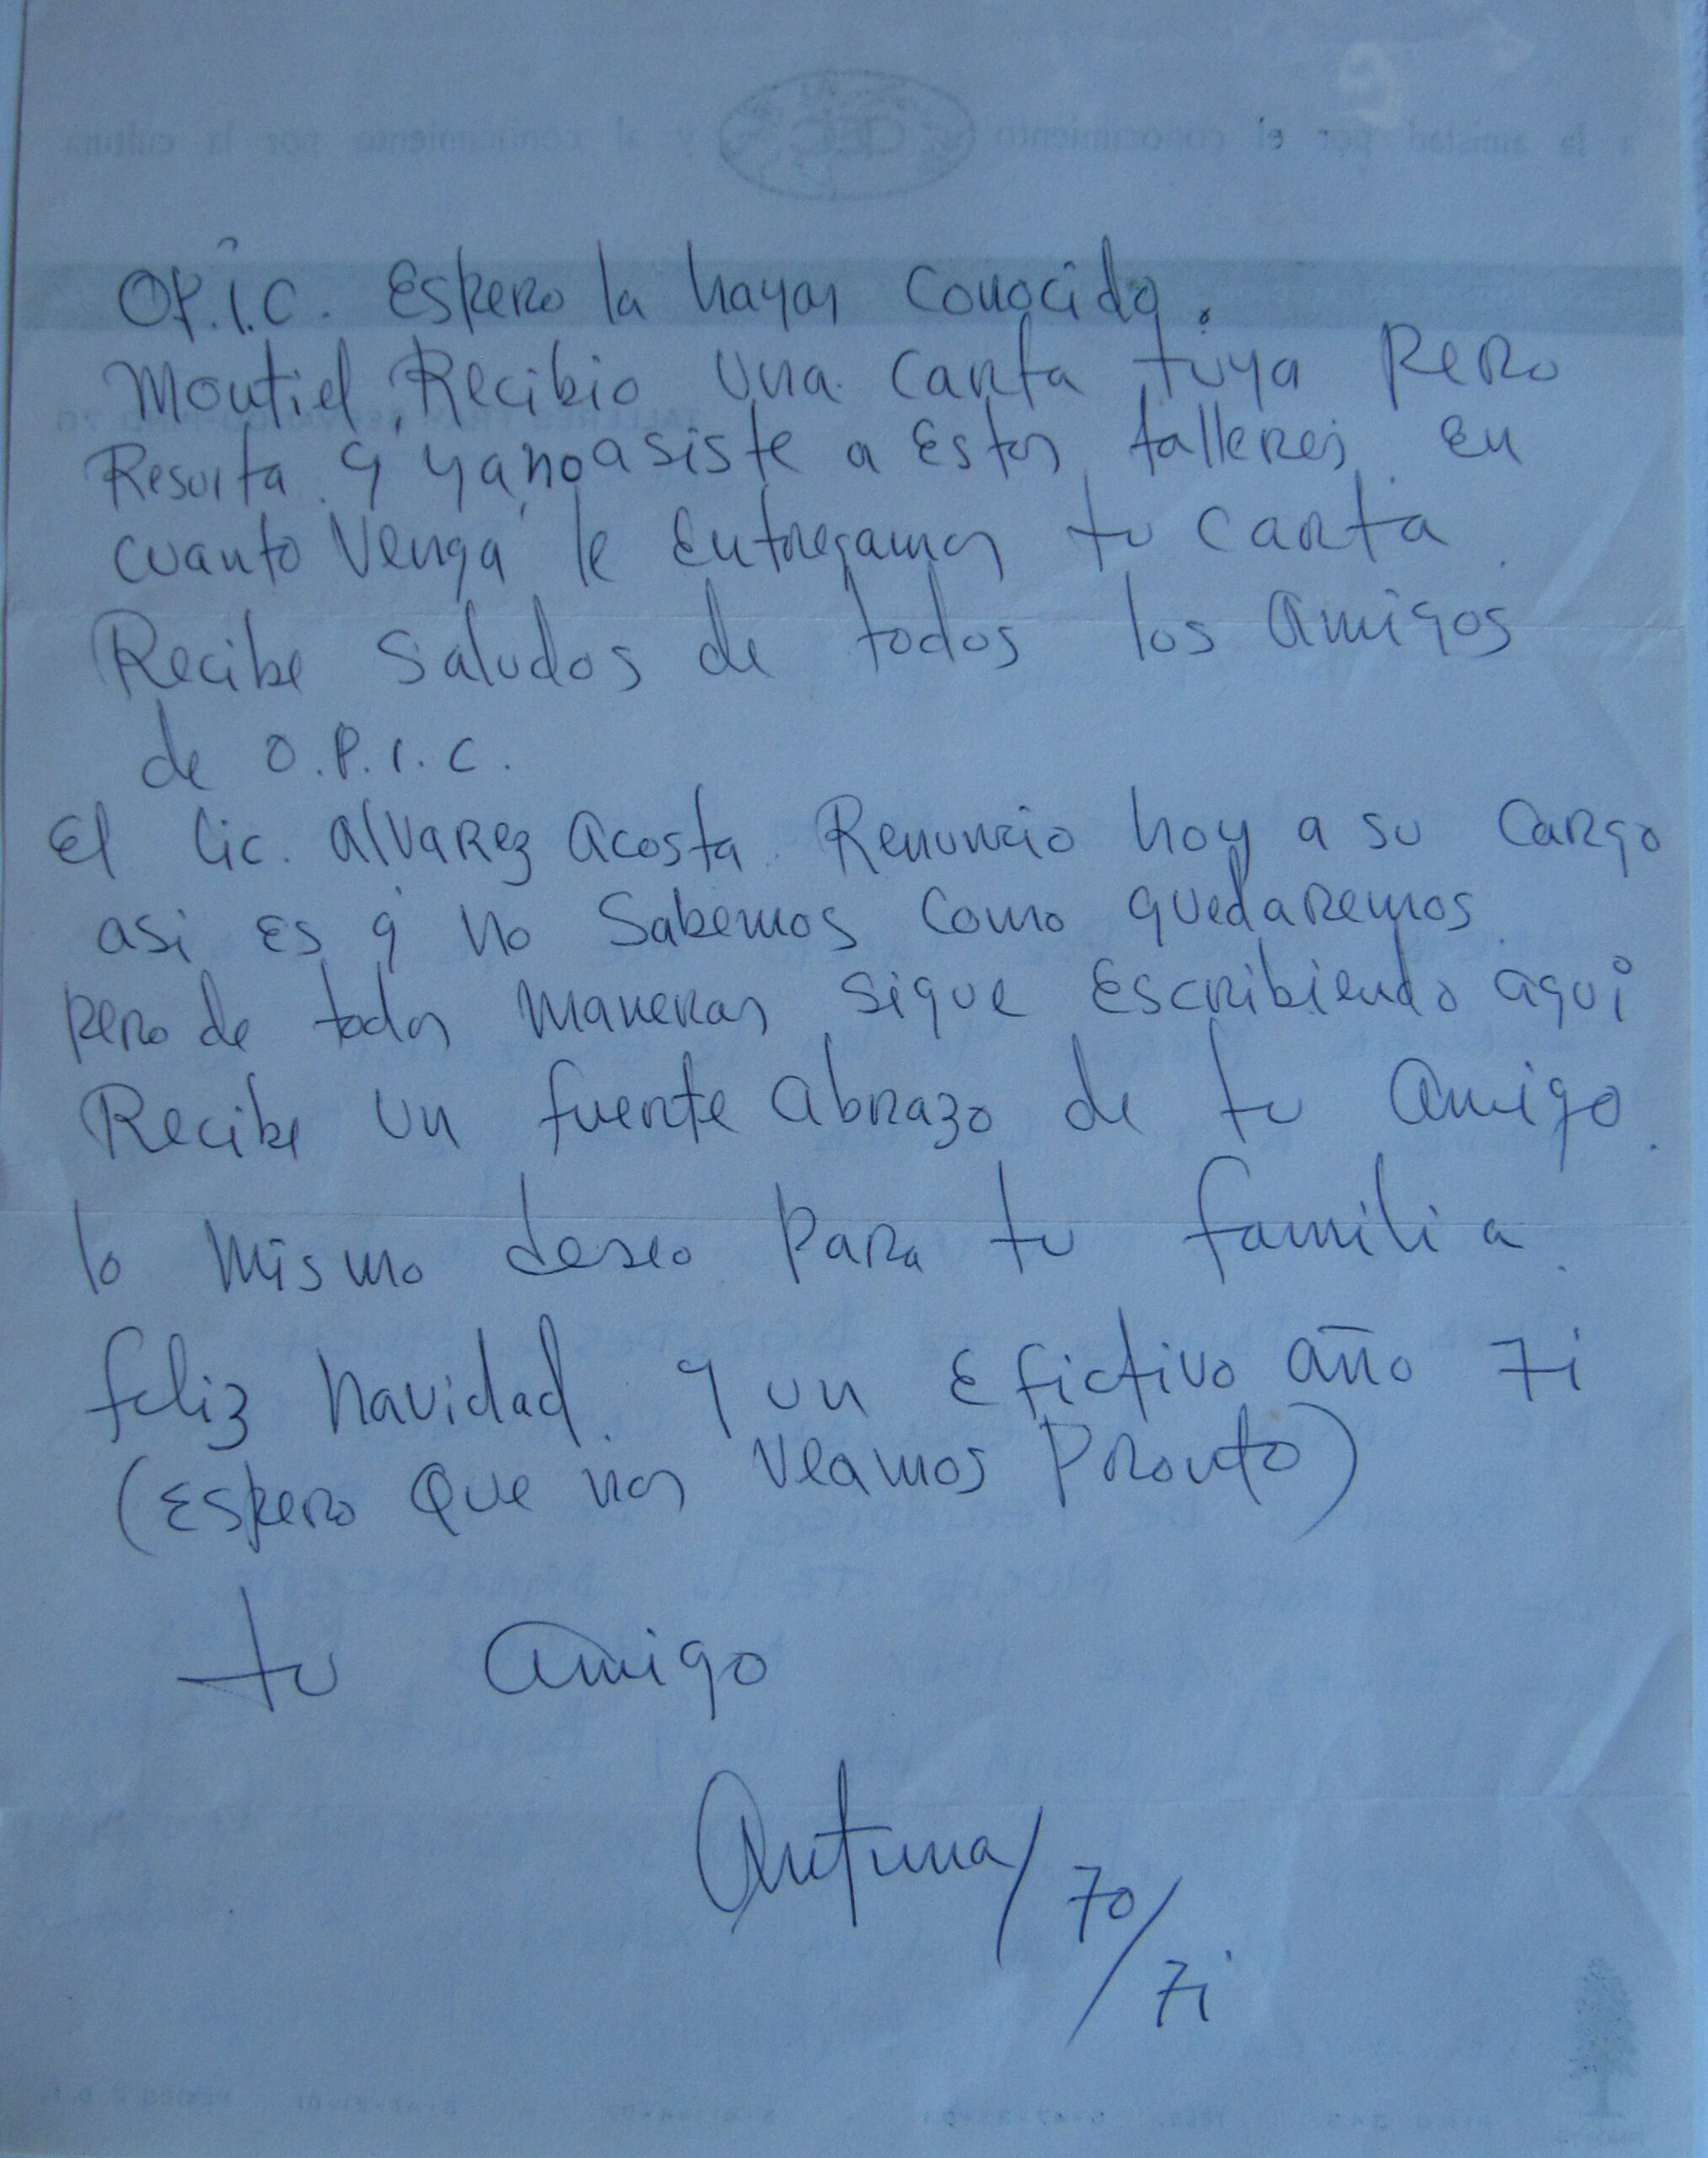 a la amistad por el conocimiento CISEC y al conocimiento por la cultura
OP.I.C. Espero la hayas conocido.
Montiel Recibio una carta tuya pero
Resulta q' ya no asiste a estos talleres. en
cuanto venga le entregamos tu carta.
Recibe saludos de todos los amigos
de O.P.I.C.
El Lic. Alvarez Acosta Renuncio hoy a su cargo
asi es q' no sabemos como quedaremos.
pero de todas maneras sigue escribiendo aqui
Recibe un fuerte abrazo de tu amigo.
lo mismo deseo para tu familia.
feliz navidad. y un efictivo año 71
(Espero que nos veamos pronto)
tu amigo
Antuna/70/71